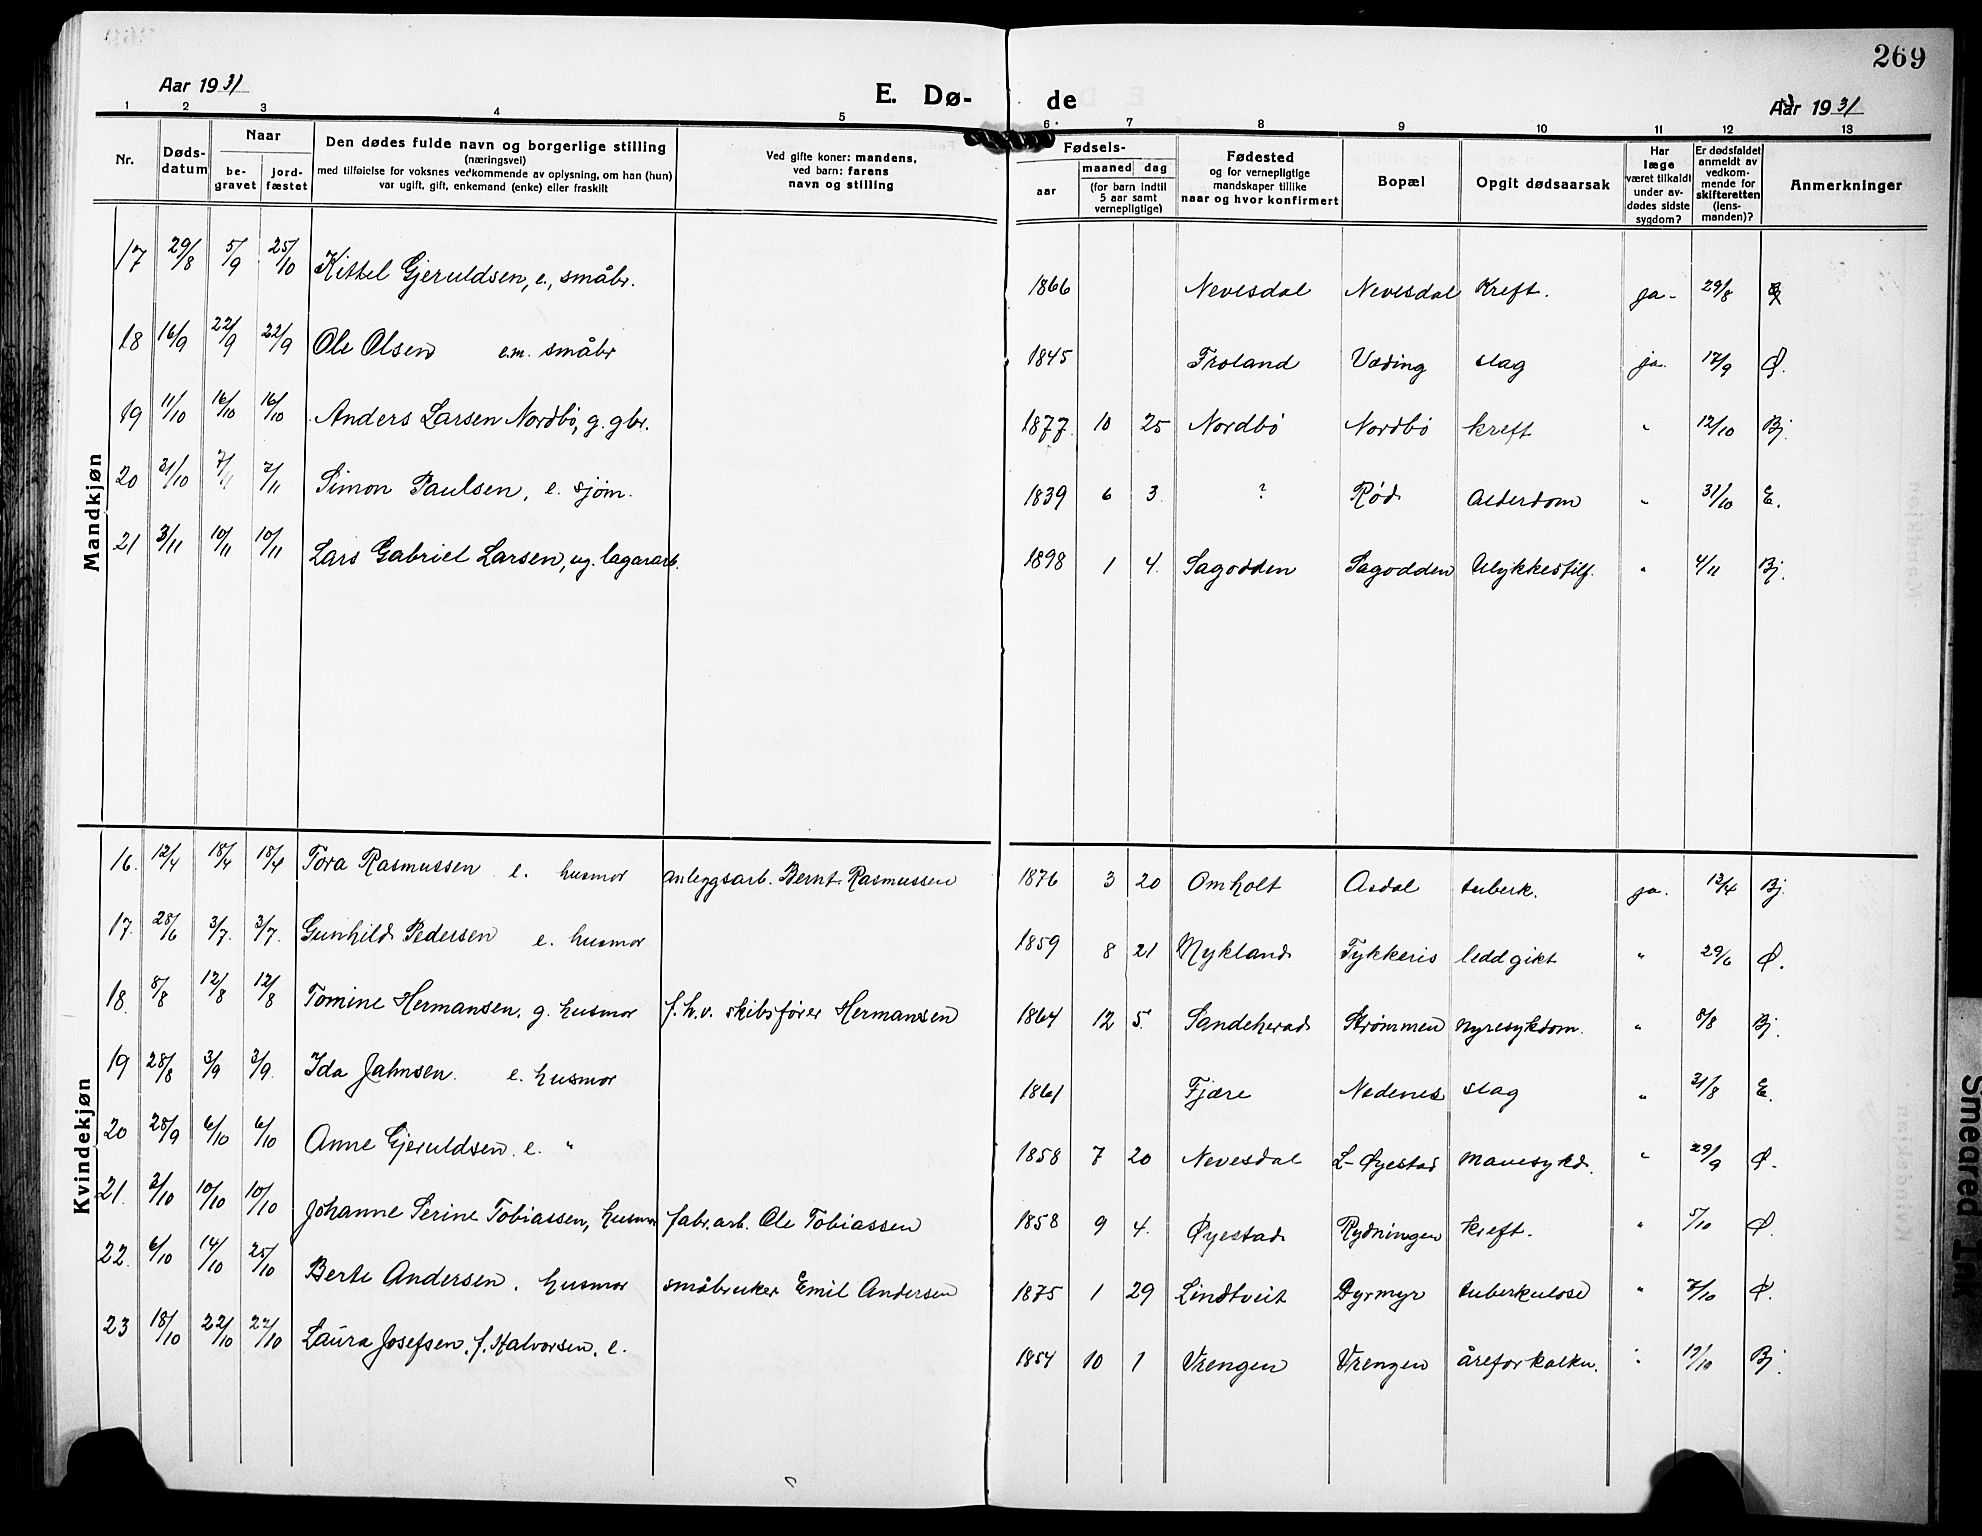 269
Aar 1931
E. Dø-
de
Aar 1931
1 2 3 4 5 6 7 8 9 10 11 12 13
Nr.
Dødsdatum
Naar
begravet
jordfæstet
Den dødes fulde navn og borgerlige stilling
(næringsvei)
med tilføielse for voksnes vedkommende av oplysning, om han (hun)
var ugift, gift, enkemand (enke) eller fraskilt
Ved gifte koner: mandens,
ved barn: farens
navn og stilling
Fødsels-
aar
maaned dag
(for barn indtil
5 aar samt
vernepligtige)
Fødested
og for vernepligtige
mandskaper tillike
naar og hvor konfirmert
Bopæl
Opgit dødsaarsak
Har
læge
været tilkaldt
under av-
dødes sidste
sygdom?
Er dødsfaldet
anmeldt av
vedkom-
mende for
skifteretten
(lens-
manden)?
Anmerkninger
Mandkjøn
17 29/8 5/9 25/10 Kittel Gjeruldsen, e., småbr. 1866 Nevesdal Nevesdal Kreft. ja- 29/8
18 16/9 22/9 22/9 Ole Olsen e.m. småbr 1845 Froland Væding slag ja. 17/9 Ø.
19 11/10 16/10 16/10 Anders Larsen Nordbø, g. gbr. 1877 10 25 Nordbø Nordbø kreft " 12/10 Bj.
20 31/10 7/11 7/11 Simon Paulsen, e. sjøm. 1839 6 3 ? Rød Alderdom " 31/10 E.
21 3/11 10/11 10/11 Lars Gabriel Larsen, ug. lagerarb. 1898 1 4. Sagodden Sagodden Ulykkestilf. " 4/11 Bj.
Kvindekjøn
16. 12/4 18/4 18/4 Tora Rasmussen e. husmor anleggsarb. Bernt Rasmussen 1876 3 20 Omholt Asdal tuberk. ja. 13/4 Bj.
17. 28/6 3/7. 3/7. Gunhild Pedersen e. husmor 1859 8 21 Mykland Tykkeris leddgikt " 29/6 Ø.
18. 8/8 12/8 12/8 Tomine Hermansen, g. husmor f.h.v. skibsfører Hermansen 1864 12 5. Sandeherad Strømmen nyresykdom. " 8/8 Bj.
19 28/8 3/9 3/9. Ida Jahnsen. e. husmor 1861 Fjære Nedenes slag " 31/8 E.
20 28/9 6/10 6/10 Anne Gjeruldsen. e. " 1858 7 20 Nevesdal L-Øyestad mavesykd. " 29/9 Ø.
21. 3/10 10/10 10/10 Johanne Serine Tobiassen, husmor fabr.arb. Ole Tobiassen 1858 9 4. Øyestad Rydningen kreft. " 5/10 Ø.
22. 6/10 14/10 25/10 Berte Andersen. husmor småbruker Emil Andersen 1875 1 29 Lindtveit Dyrmyr tuberkulose " 7/10 Ø.
23 18/10 22/10 22/10 Laura Josefsen, f. Halvorsen, e. 1854 10 1 Vrengen Vrengen åreforkalkn. " 19/10 Bj.
Smeared Ink